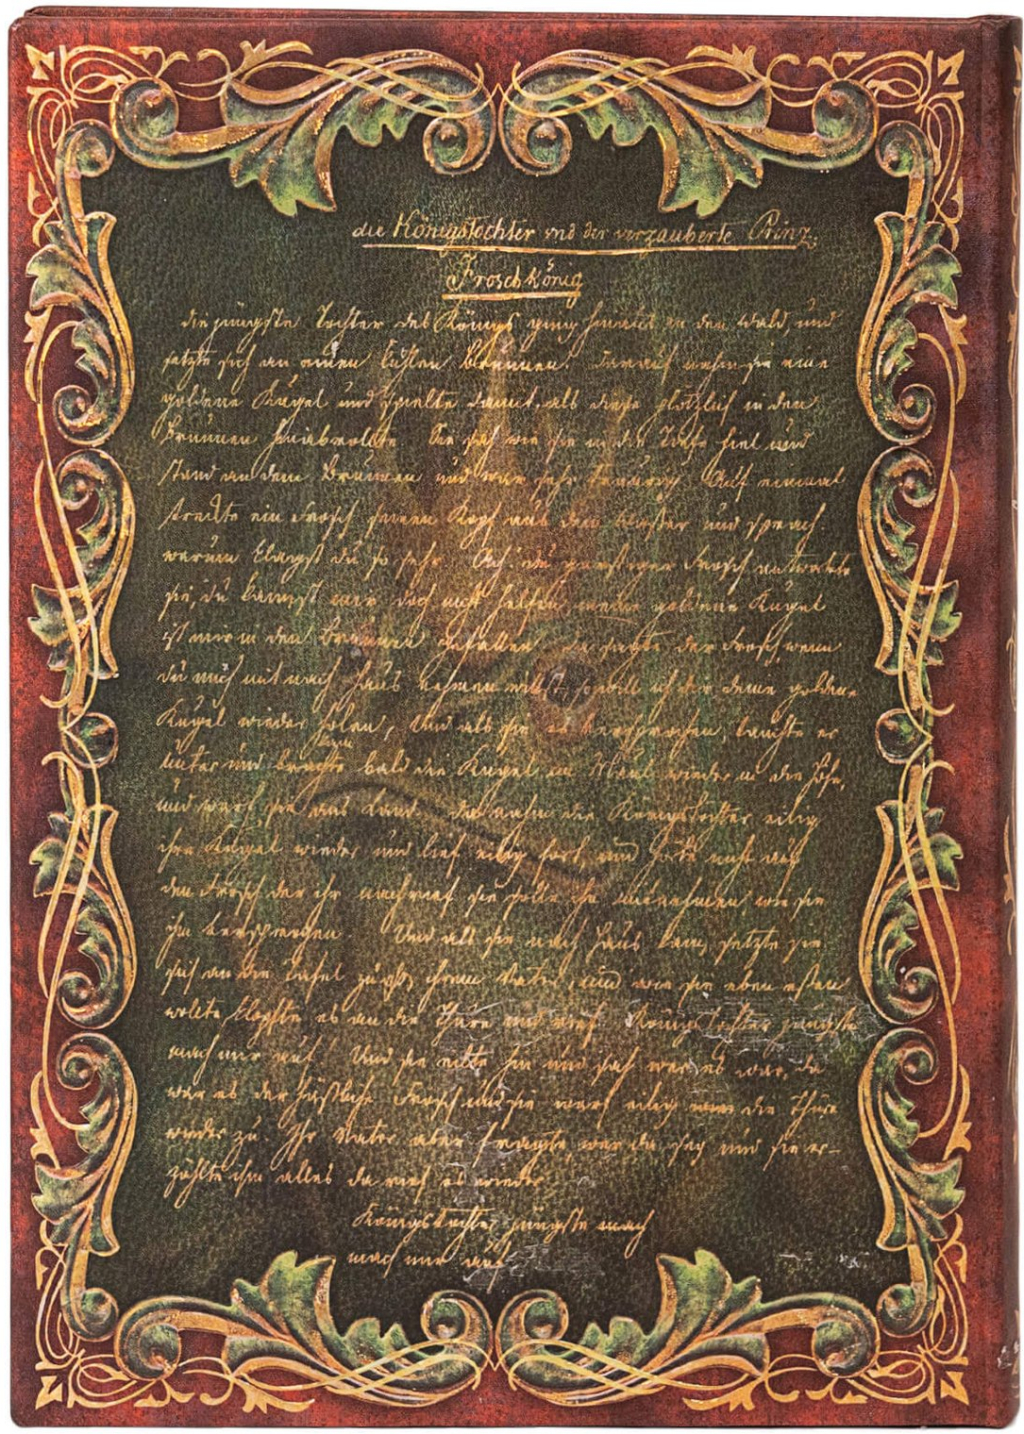 die Königstochter und der verzauberte Prinz.
Froschkönig
die jüngste Tochter des Königs ging hinaus in den Wald, und
setzte sich an einen kühlen Brunnen. Darauf nahm sie eine
goldene Kugel und spielte damit, als diese plötzlich in den
Brunnen hinabrollte. Sie sah wie sie in die Tiefe fiel und
stand an dem Brunnen und war sehr traurig. Auf einmal
streckte ein Frosch seinen Kopf aus dem Wasser und sprach
warum klagst du so sehr. Ach! du garstiger Frosch antwortete
sie, du kannst mir doch nicht helfen, meine goldene Kugel
ist mir in den Brunnen gefallen. da sagte der Frosch, wenn
du mich mit nach Haus nehmen willst, so will ich dir deine goldne
Kugel wieder holen, Und als sie es versprochen, tauchte er
unter und brachte bald die Kugel im Maul wieder in die Höhe,
und warf sie ans Land. da nahm die Königstochter eilig
ihre Kugel wieder und lief eilig fort, und hörte nicht auf
den Frosch der ihr nachrief sie solle ihn mitnehmen wie sie
ihm versprochen. Und als sie nach Haus kam, setzte sie
sich an die Tafel zu ihrem Vater, und wie sie eben essen
wollte klopfte es an die Thüre und rief: Königstochter jüngste
mach mir auf! Und sie eilte hin und sah wer es war, da
war es der häßliche Frosch und sie warf eilig die Thüre
wieder zu. Ihr Vater aber fragte, wer da sey und sie er-
zählte ihm alles da rief es wieder
Königstochter jüngste mach
mach mir auf